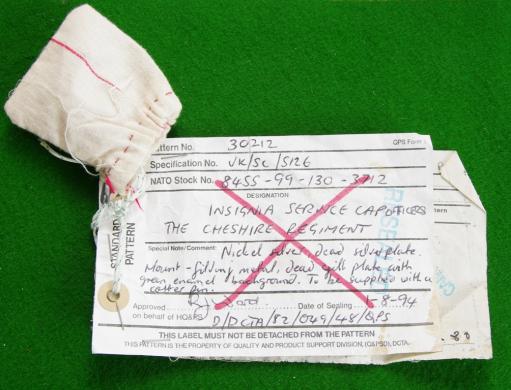 Pattern No. 30212
QPS Form
Specification No. UK/SC/5126
NATO Stock No. 8455-99-130-3712
DESIGNATION
INSIGNIA SERVICE CAP OFFICERS
THE CHESHIRE REGIMENT
Special Note/Comment: Nickel silver, dead silver plate.
Mount - gilding metal, dead gilt plate with
green enamel background. To be supplied with a
cotter pin.
Approved Date of Sealing 1-8-94
on behalf of HQ&PS D/DCTA/82/049/48/QPS
THIS LABEL MUST NOT BE DETACHED FROM THE PATTERN
THIS PATTERN IS THE PROPERTY OF QUALITY AND PRODUCT SUPPORT DIVISION, (Q&PSD), DCTA.
STANDARD
PATTERN